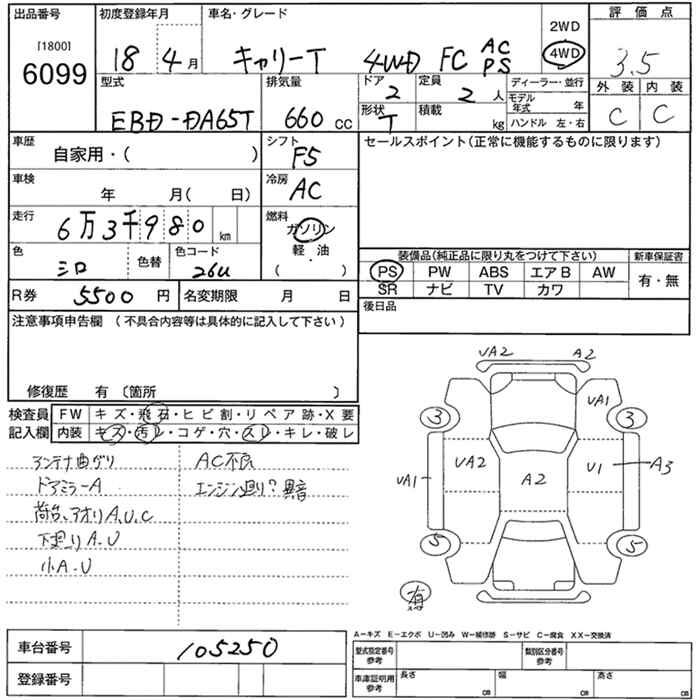 出品番号
[1800]
6099
初度登録年月
18 4 月
車名・グレード
キャリーT 4WD FC AC PS
2WD
4WD
評価点
3.5
外装 内装
C C
型式
EBD-DA65T
排気量
660 cc
ドア 2
定員 2 人
形状 T
積載 kg
ディーラー・並行
モデル年式 年
ハンドル 左・右
車歴
自家用・( )
シフト
F5
セールスポイント(正常に機能するものに限ります)
車検
年 月( 日)
冷房
AC
走行
6万3千980 km
燃料
ガソリン
軽・油
( )
色
シロ
色替
色コード
26U
装備品(純正品に限り丸をつけて下さい) 新車保証書
PS PW ABS エアB AW 有・無
SR ナビ TV カワ
R券 5500 円 名変期限 月 日
後日品
注意事項申告欄 (不具合内容等は具体的に記入して下さい)
修復歴 有 〔箇所 〕
検査員 FW キズ・飛石・ヒビ割・リペア跡・X要
記入欄 内装 キズ・汚レ・コゲ・穴・スレ・キレ・破レ
アンテナ曲がり AC不良
ドアミラーA エンジン廻り?異音
荷台、アオリA,U,C
下廻りA.U
小A.U
UA2 A2
UA1
3 3
UA2 U1 A3
UA1 A2
5 5
有
A-キズ E-エクボ U-凹み W-補修跡 S-サビ C-腐食 XX-交換済
車台番号 105250
登録番号
型式指定番号 参考 類別区分番号 参考
車庫証明用 参考 長さ cm 幅 cm 高さ cm